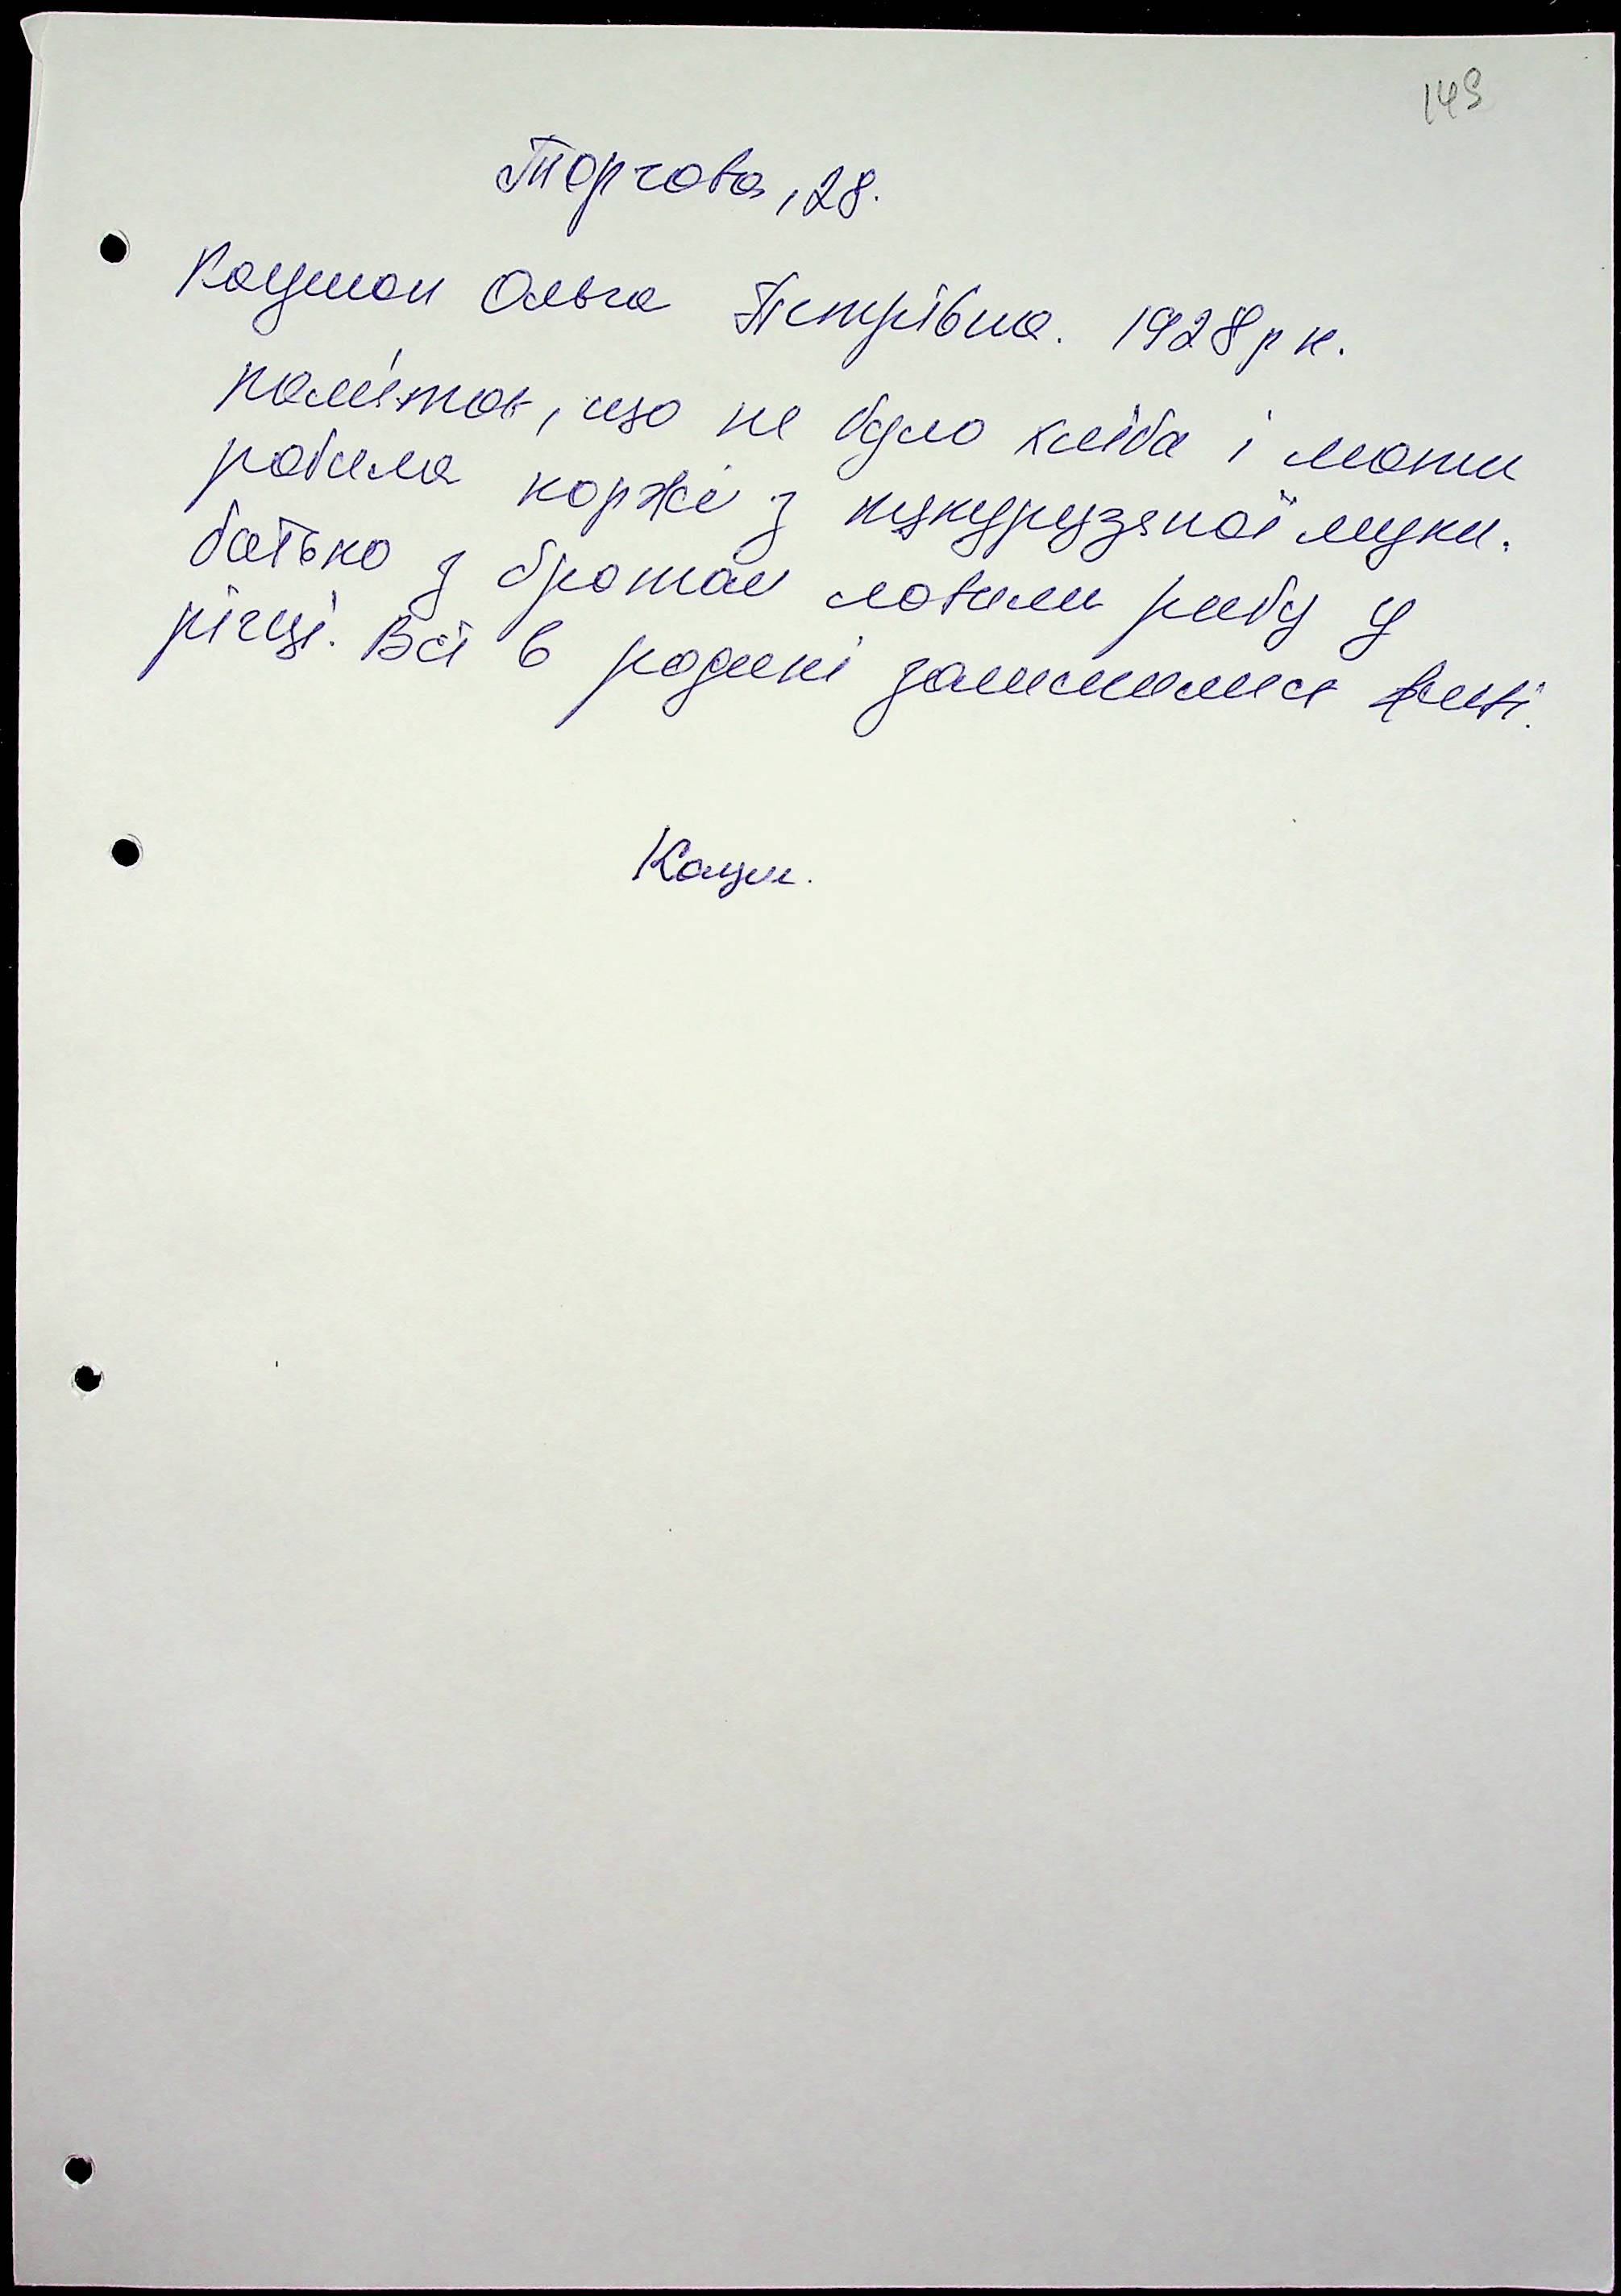 149
Торгова, 28.
Кацман Ольга Петрівна. 1928 р н.
пам'ятає, що не було хліба і мати
робила коржі з кукурузяної муки.
батько з братом ловили рибу у
річці. Всі в родині залишилися живі.
Кацм.